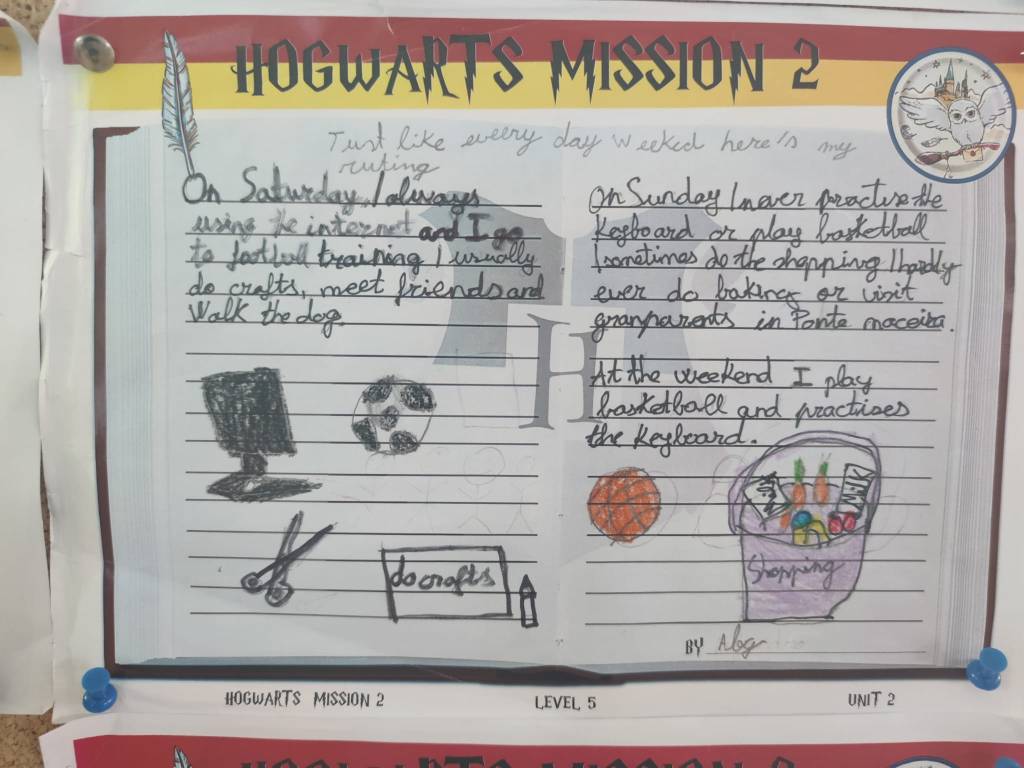 HOGWARTS MISSION 2
Just like every day weeked here's my
ruting
On Saturday, I always
using the internet and I go
to football training I usually
do crafts, meet friends and
Walk the dog.
do crafts
On Sunday I never practise the
Keyboard or play basketball
I sometimes do the shopping I hardly
ever do baking or visit
granparents in Ponte maceira.
At the weekend I play
basketball and practises
the Keyboard.
Shopping
BY Abg
HOGWARTS MISSION 2
LEVEL 5
UNIT 2